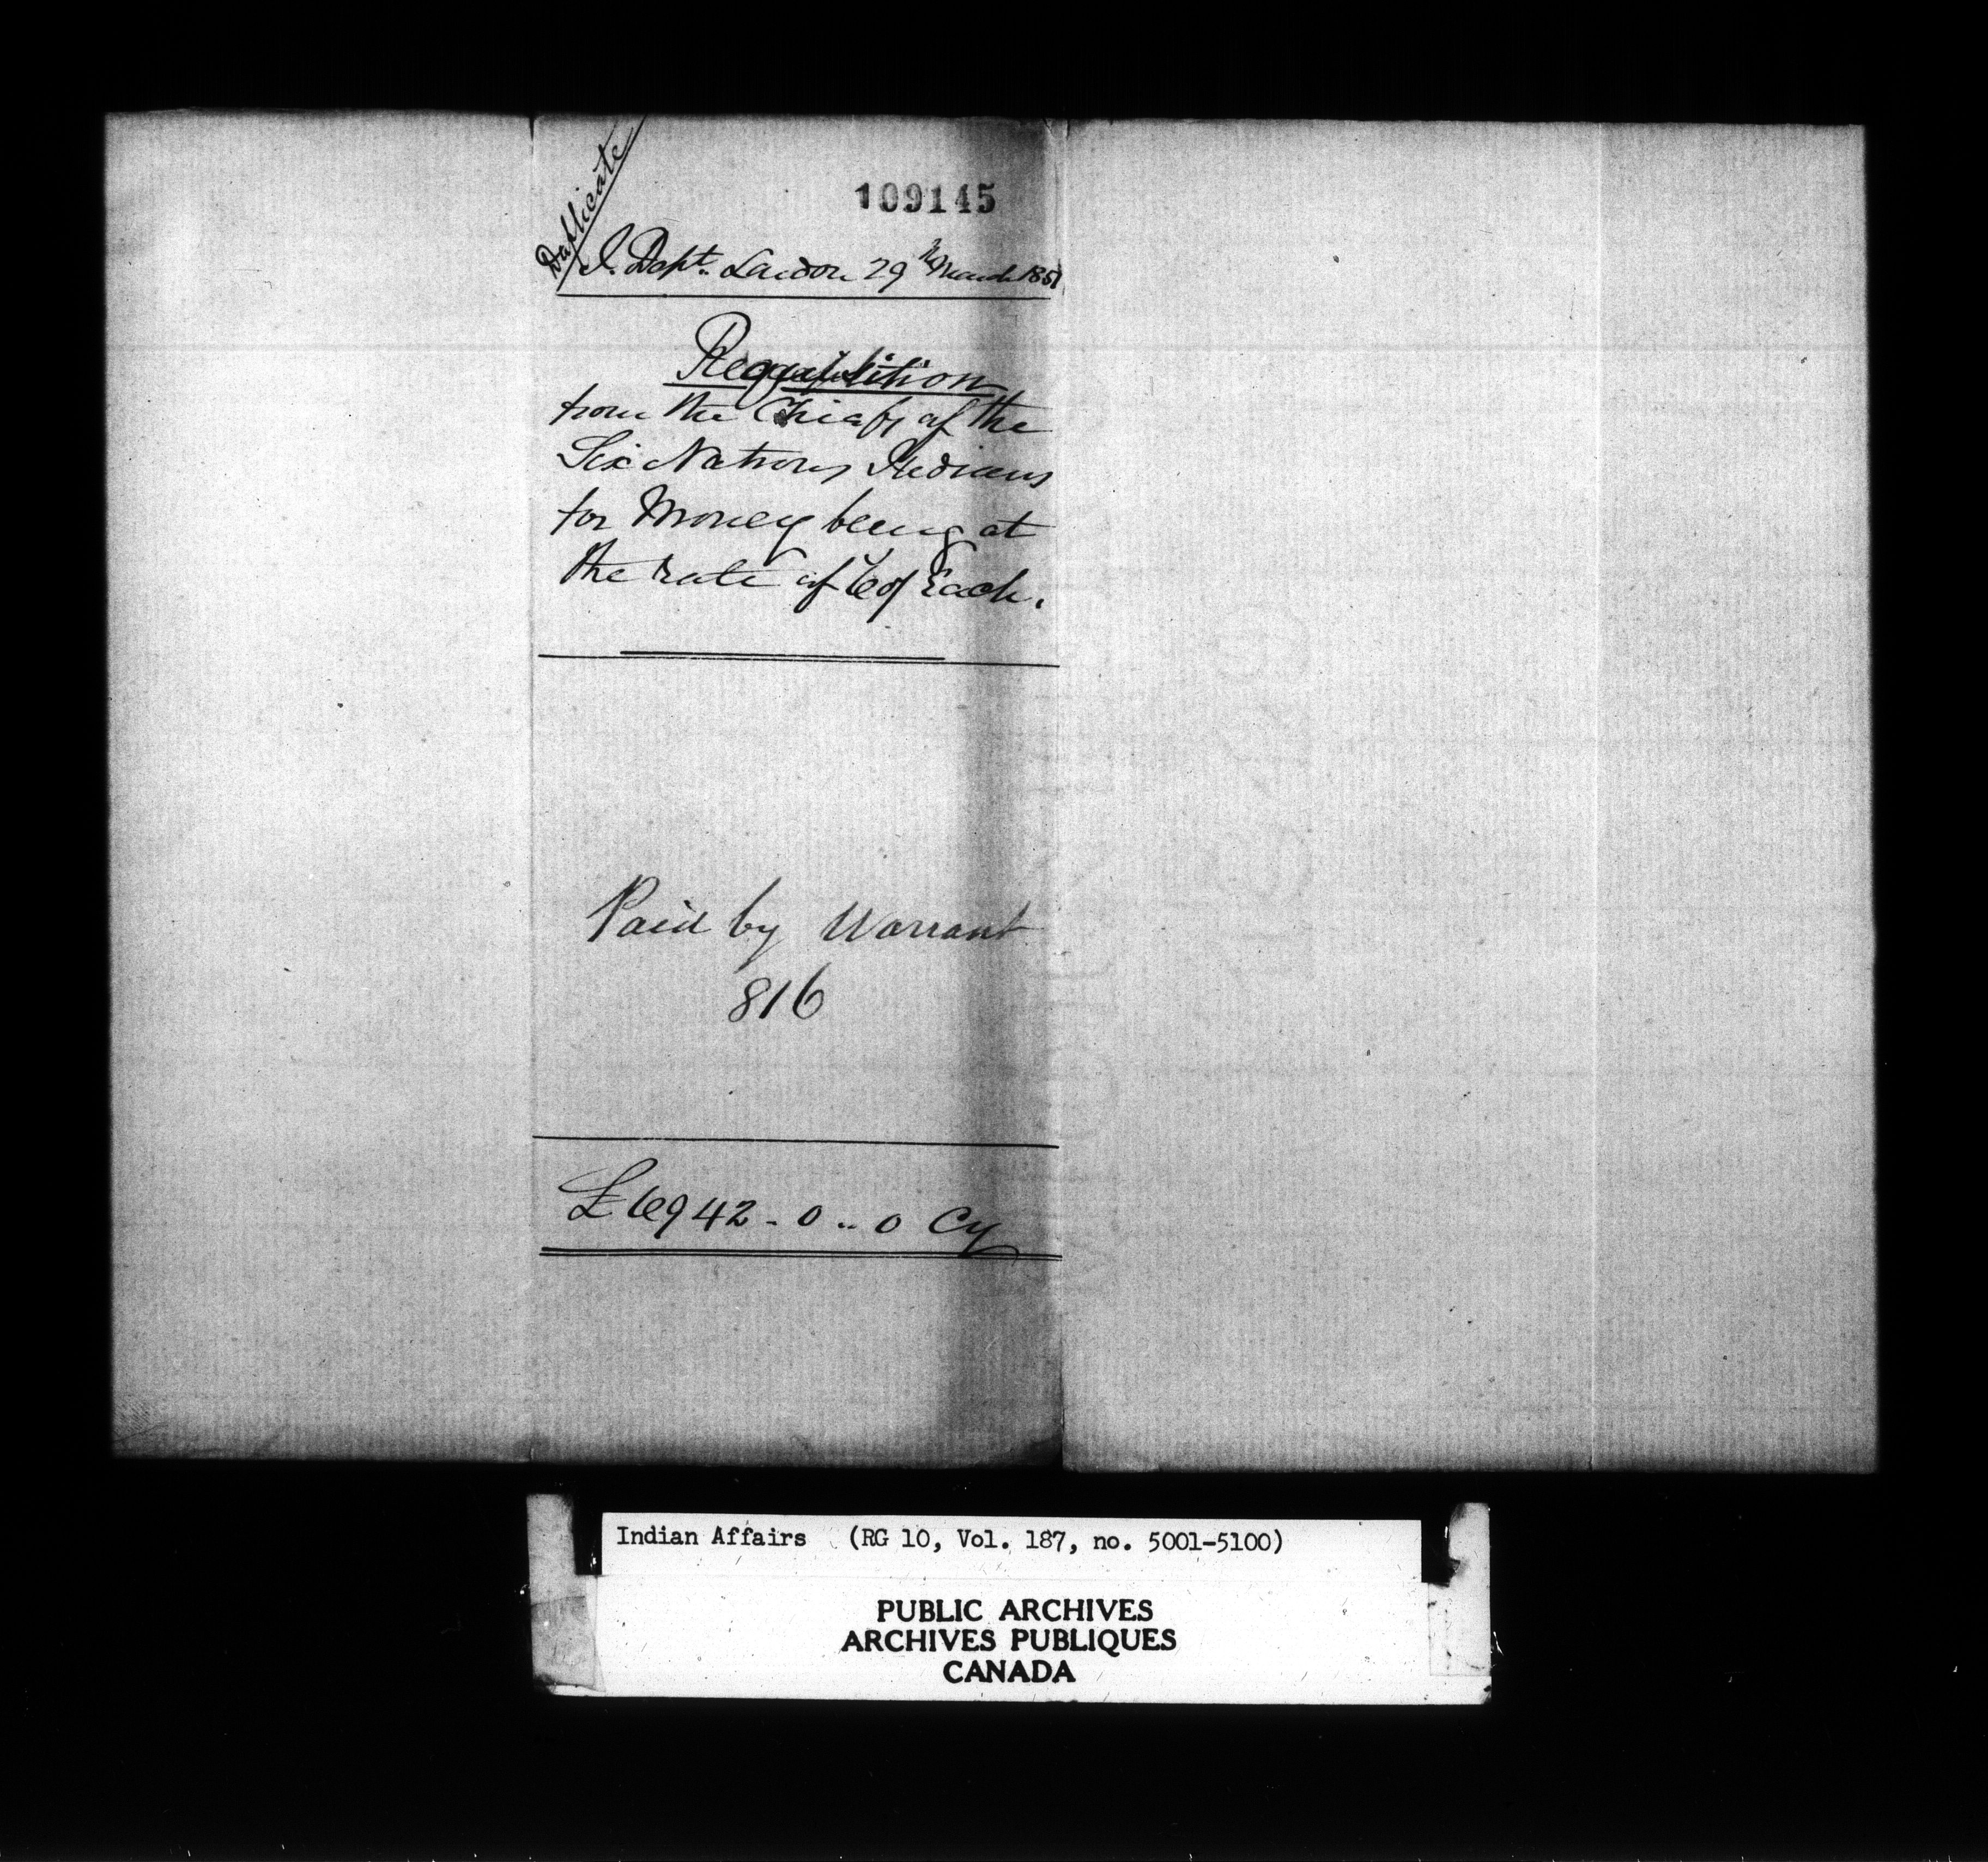 Duplicate
109145
I. Dept. London 29th March 1851
Requisition
from the Chiefs of the
Six Nations Indians
for Money being at
the rate of 60/ Each.
Paid by Warrant
816
£6942 - 0 .. 0 Cy
Indian Affairs (RG 10, Vol. 187, no. 5001-5100)
PUBLIC ARCHIVES
ARCHIVES PUBLIQUES
CANADA